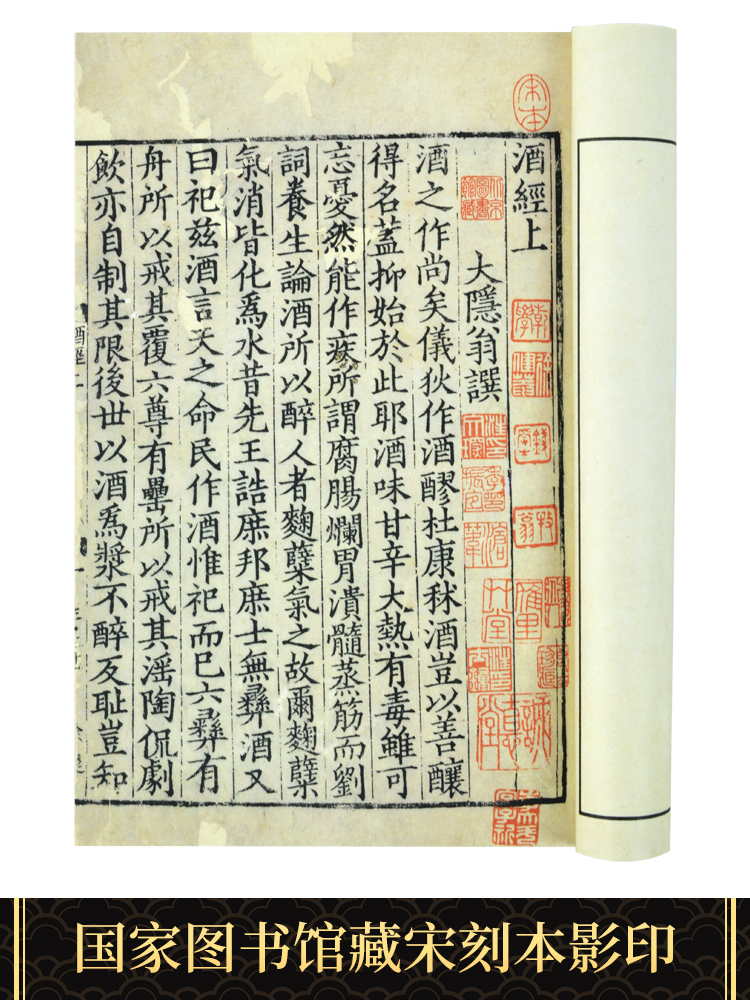 酒經上
大隱翁譔
酒之作尚矣儀狄作酒醪杜康秫酒豈以善釀
得名蓋抑始於此耶酒味甘辛大熱有毒雖可
忘憂然能作疾所謂腐腸爛胃潰髓蒸筋而劉
詞養生論酒所以醉人者麴糵氣之故爾麴糵
氣消皆化爲水昔先王誥庶邦庶士無彝酒又
曰祀兹酒言天之命民作酒惟祀而已六彝有
舟所以戒其覆六尊有罍所以戒其淫陶侃劇
飲亦自制其限後世以酒爲漿不醉反耻豈知
酒經上
宋本
国家图书馆藏宋刻本影印